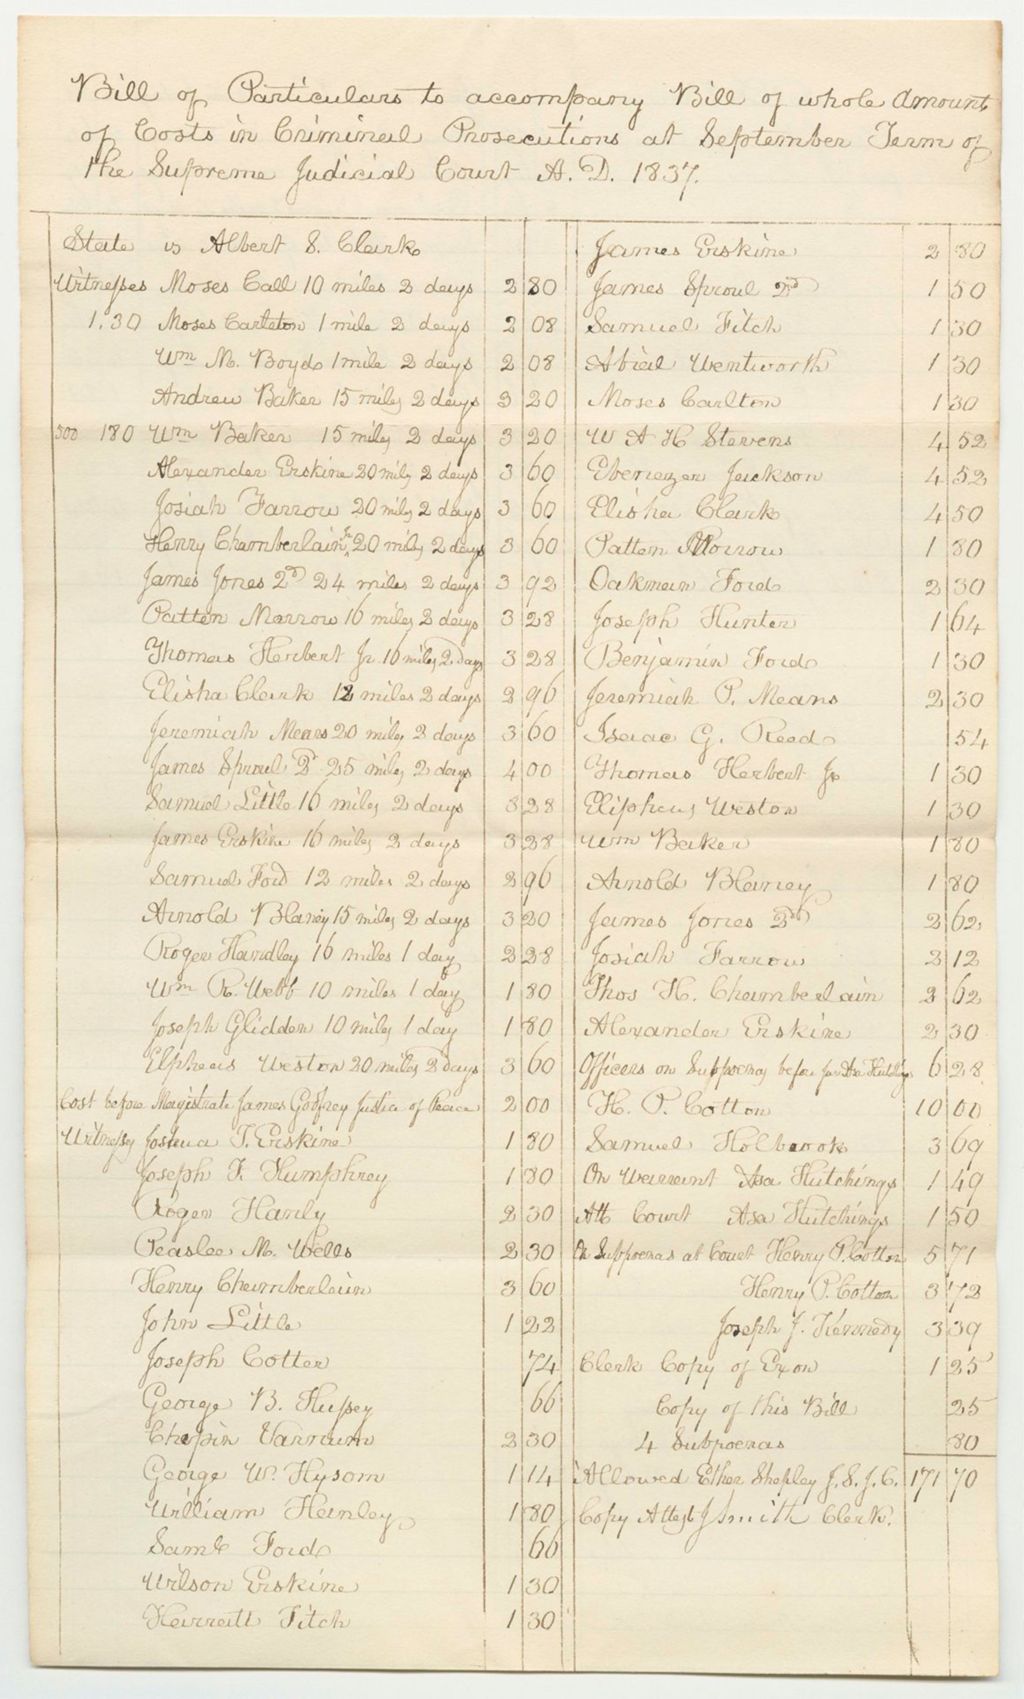 Bill of Particulars to accompany Bill of whole Amount
of Costs in Criminal Prosecutions at September Term of
the Supreme Judicial Court A.D. 1837.
State vs Albert S. Clark
Witnesses Moses Call 10 miles 2 days 2 80
1.30 Moses Carleton 1 mile 2 days 2 08
Wm M. Boyd 1 mile 2 days 2 08
Andrew Baker 15 miles 2 days 3 20
500 180 Wm Baker 15 miles 2 days 3 20
Alexander Erskine 20 miles 2 days 3 60
Josiah Farrow 20 miles 2 days 3 60
Henry Chamberlain Jr. 20 miles 2 days 3 60
James Jones 2d 24 miles 2 days 3 92
Patten Marrow 16 miles 2 days 3 28
Thomas Herbert Jr 16 miles 2 days 3 28
Elisha Clark 12 miles 2 days 2 96
Jeremiah Means 20 miles 2 days 3 60
James Sproul 2d 25 miles 2 days 4 00
Samuel Little 16 miles 2 days 3 28
James Erskine 16 miles 2 days 3 28
Samuel Ford 12 miles 2 days 2 96
Arnold Blaney 15 miles 2 days 3 20
Roger Handley 16 miles 1 day 2 28
Wm R. Webb 10 miles 1 day 1 80
Joseph Glidden 10 miles 1 day 1 80
Elpheus Weston 20 miles 2 days 3 60
Cost before Magistrate James Godfrey Justice of Peace 2 00
Witnesses Joshua T. Erskine 1 80
Joseph F. Humphrey 1 80
Roger Hanly 2 30
Peaslee M. Wells 2 30
Henry Chamberlain 3 60
John Little 1 22
Joseph Cotter 74
George B. Hussey 66
Chapin Varnum 2 30
George W. Hysom 1 14
William Hanley 1 80
Saml Ford 66
Wilson Erskine 1 30
Harriett Fitch 1 30
James Erskine 2 80
James Sproul 2d 1 50
Samuel Fitch 1 30
Abial Wentworth 1 30
Moses Carlton 1 30
W A H Stevens 4 52
Ebenezer Jackson 4 52
Elisha Clark 4 50
Patten Morrow 1 80
Oakman Ford 2 30
Joseph Hunter 1 64
Benjamin Ford 1 30
Jeremiah P. Means 2 30
Isaac G. Reed 54
Thomas Herbert Jr 1 30
Elipheus Weston 1 30
Wm Baker 1 80
Arnold Blaney 1 80
James Jones 2d 2 62
Josiah Farrow 2 12
Thos H. Chamberlain 2 62
Alexander Erskine 2 30
Officers on Subpoenas before Asa Hutchings 6 28
H. P. Cotton 10 00
Samuel Holbrook 3 69
On Warrant Asa Hutchings 1 49
Att Court Asa Hutchings 1 50
On Subpoenas at Court Henry P. Cotton 5 71
Henry P. Cotton 3 72
Joseph J. Kennedy 3 39
Clerk Copy of Exon 1 25
Copy of this Bill 25
4 Subpoenas 80
Allowed Ether Shepley J.S.J.C. 171 70
Copy Attest J Smith Clerk.